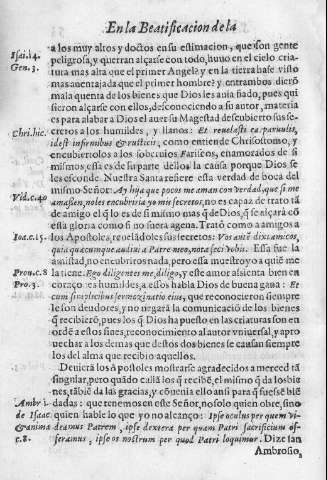 En la Beatificacion de la
a los muy altos y doctos en su estimacion, que son gente
Isai. 14. peligrosa, y querran alçarse con todo, huuo en el cielo criatura
Gen. 3. mas alta que el primer Angel? y en la tierra hase visto
mas auentajada que el primer hombre? y entrambos dieron
mala quenta de los bienes que Dios les auia fiado, pues quisieron
alçarse con ellos, desconociendo a su autor, materia
es para alabar a Dios el auer su Magestad descubierto sus secretos
Chri. hic. a los humildes, y llanos: Et reuelasti ea paruulis,
idest infirmibus & rusticis, como entiende Chrisostomo, y
encubriertolo a los soberuios Fariseos, enamorados de si
mismos, essa es de su parte dellos la causa porque Dios se
les esconde. Nuestra Santa refiere esta verdad de boca del
mismo Señor: Ay hija que pocos me aman con verdad, que si me
Vid. c. 40 amassen, no les encubriria yo mis secretos, no es capaz de trato tã
de amigo el q̃ lo es de si mismo mas q̃ de Dios, q̃ se alçarà cõ
essa gloria como si no fuera agena. Tratò como a amigos a
Ioa. c. 15. los Apostoles, reuelòles sus secretos: Vos autẽ dixi amicos,
quia quæcumque audiui a Patre meo, nota feci vobis. Essa fue la
amistad, no encubriros nada, pero essa muestro yo a quiẽ me
Prou. c. 8 la tiene. Ego diligentes me, diligo, y este amor assienta bien en
Pro. 3. coraçones humildes, a essos habla Dios de buena gana: Et
cum simplicibus sermocinatio eius, que reconocieron siempre
le son deudores, y no negarà la comunicacion de los bienes
q̃ recibierõ, pues los q̃ Dios ha puesto en las criaturas son en
ordẽ a estos fines, reconocimiento al autor vniuersal, y aprouechar
a los demas que destos dos bienes se causan siempre
los del alma que recibio aquellos.
Deuierã los Apostoles mostrarse agradecidos a merced tã
singular, pero quãdo callã los q̃ recibẽ, el mismo q̃ da los bienes,
tãbiẽ da las gracias, y cõuenia ello ansi para q̃ fuesse biẽ
Ambr. l. dadas: que tenemos en este Señor, no solo quien obre, sino
de Isaac quien hable lo que yo no alcanço: Ipse oculus per quem videamus
& anima Patrem, ipse dextera per quam Patri sacrificium offeramus,
c. 8. ipse os nostrum per quod Patri loquimur. Dize san
Ambrosio,